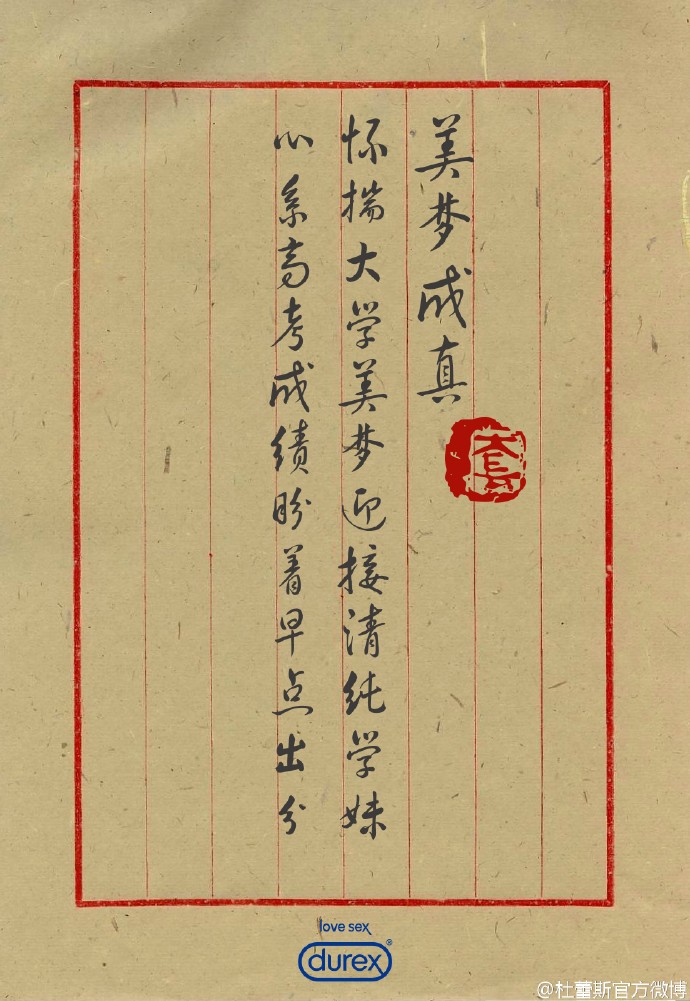 美梦成真
套
怀揣大学美梦迎接清纯学妹
心系高考成绩盼着早点出分
love sex
durex®
@杜蕾斯官方微博